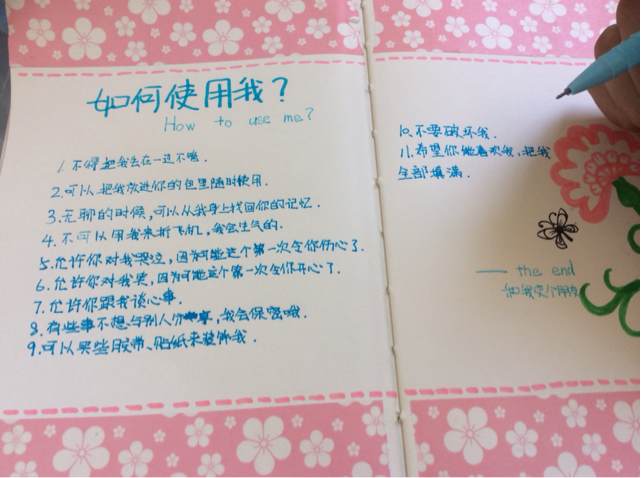 如何使用我?
How to use me?
1. 不得把我丢在一边不嘴.
2. 可以把我放进你的包里随时使用.
3. 无聊的时候,可以从我身上找回你的记忆.
4. 不可以用我来折飞机,我会生气的.
5. 允许你对我哭泣,因为可能这个第一次令你伤心了.
6. 允许你对我笑,因为可能这个第一次令你开心了.
7. 允许你跟我谈心事.
8. 有些事不想与别人分享,我会保密哦.
9. 可以买些胶带、贴纸来装饰我.
10. 不要破坏我.
11. 希望你能喜欢我,把我
全部填满.
—— the end
和我